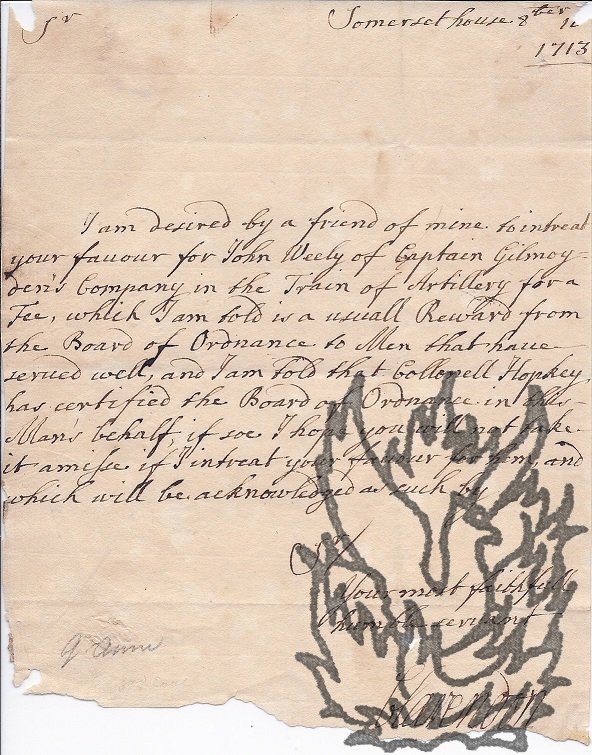 Sr
Somerset house 8ber 12
1713
I am desired by a friend of mine to intreat
your favour for John Weely of Captain Gilmoy-
den's Company in the Train of Artillery for a
Fee, which I am told is a usuall Reward from
the Board of Ordnance to Men that have
served well, and I am told that Collonell Hopkey
has certified the Board of Ordnance in this
Man's behalf, if soe I hope you will not take
it amisse if I intreat your favour for him, and
which will be acknowledged as such by
Sr/
Your most faithfull
humble servant
Clarendon
Q. Anne